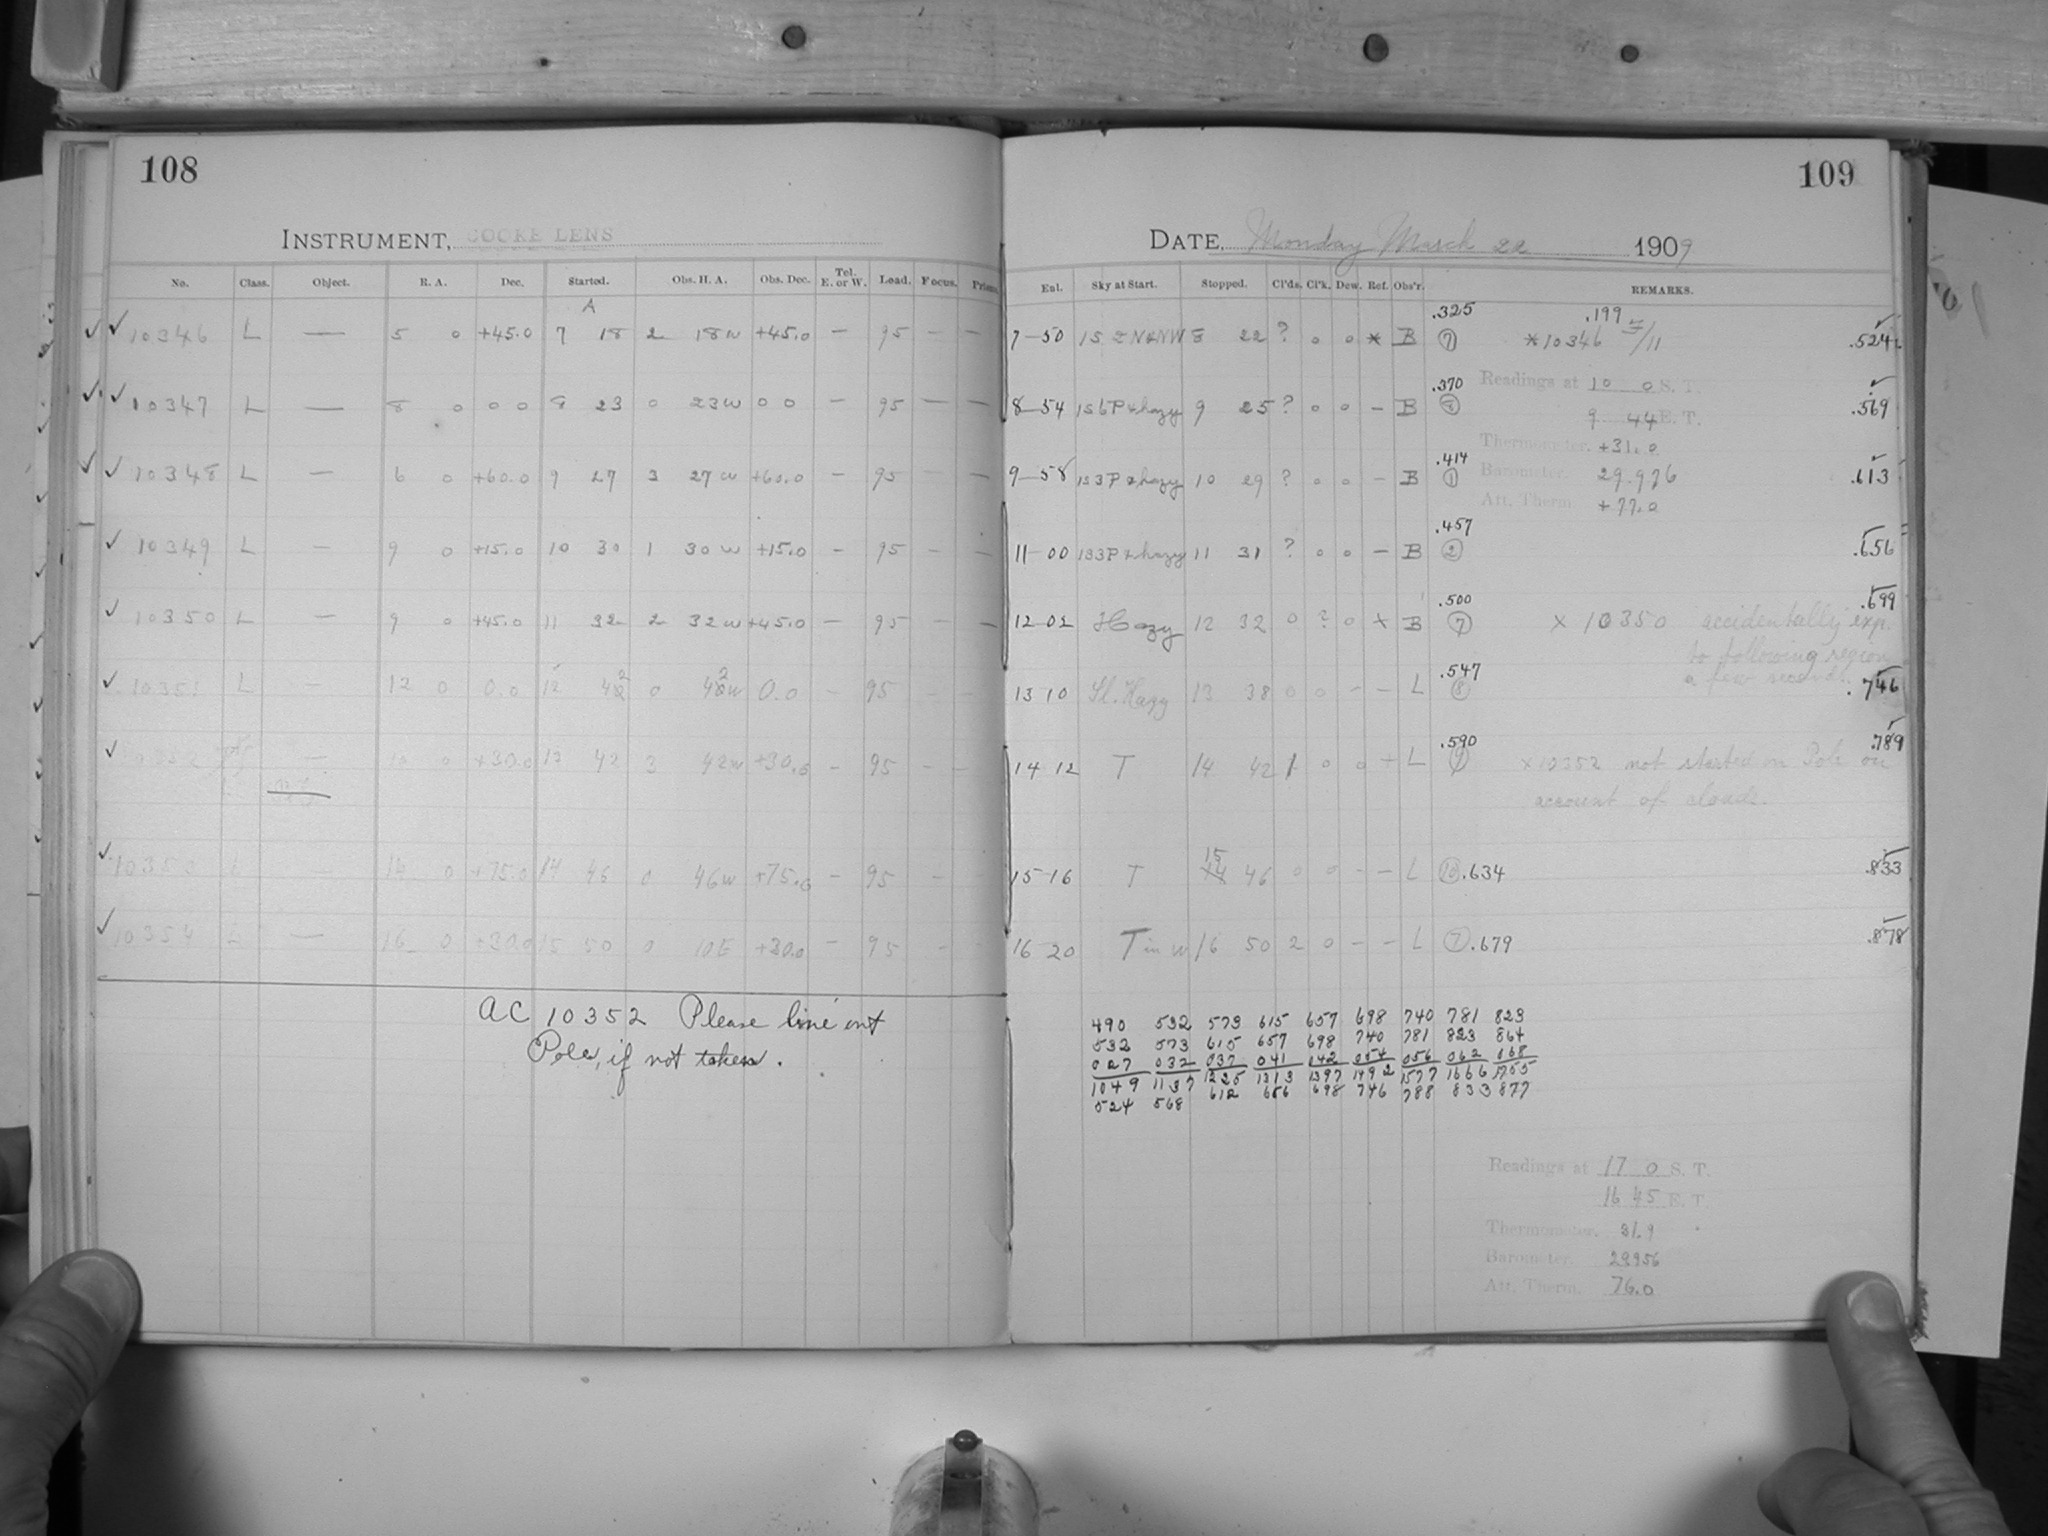 108
INSTRUMENT, COOKE LENS
No. Class. Object. R. A. Dec. Started. Obs. H. A. Obs. Dec. Tel. E. or W. Load. Focus. Prism.
A
✓ ✓ 10346 L — 5 0 +45.0 7 18 2 18w +45.0 — 95 — —
✓ ✓ 10347 L — 8 0 0 0 8 23 0 23w 0 0 — 95 — —
✓ ✓ 10348 L — 6 0 +60.0 9 27 3 27w +60.0 — 95 — —
✓ 10349 L — 9 0 +15.0 10 30 1 30w +15.0 — 95 — —
✓ 10350 L — 9 0 +45.0 11 32 2 32w +45.0 — 95 — —
✓ 10351 L — 12 0 0.0 12 42 0 42w 0.0 — 95 — —
✓ 10352 — 10 0 +30.0 13 42 3 42w +30.0 — 95 — —
✓ 1035 L — 14 0 +75.0 14 46 0 46w +75.0 — 95 — —
✓ 10354 L — 16 0 +30.0 15 50 0 10E +30.0 — 95 — —
AC 10352 Please line out
Pole, if not taken.
109
DATE, Monday March 22 1909
Ent. Sky at Start. Stopped. Cl'ds. Cl'k. Dew. Ref. Obs'r. REMARKS.
7-50 8 22 ? 0 0 * B .325 (7) *10346 .199 .524
8-54 P & hazy 9 25 ? 0 0 — B .370 (8) .569
Readings at 10 0 S. T.
9 44 E. T.
Thermometer. +31.0
9-58 133P & hazy 10 29 ? 0 0 — B .414 (1) .613
Barometer. 29.976
Att. Therm. +77.0
11-00 133P & hazy 11 31 ? 0 0 — B .457 (2) .656
12-02 Hazy 12 32 0 ? 0 x B .500 (7) x 10350 accidentally exp. .699
to following region
a few seconds.
13 10 Sl. Hazy 13 38 0 0 — — L .547 (8) .746
14 12 T 14 42 1 0 0 + L .590 (9) x10352 not started on Pole on .789
account of clouds.
15-16 T 15 46 0 0 — — L (10) .634 .833
16-20 T in w 16 50 2 0 — — L (7) .679 .878
490 532 573 615 657 698 740 781 823
532 573 615 657 698 740 781 823 864
027 032 037 041 042 054 056 062 068
1049 1137 1225 1313 1397 1492 1577 1666 1755
524 568 612 656 698 746 788 833 877
Readings at 17 0 S. T.
16 45 E. T.
Thermometer. 31.9
Barometer. 29.956
Att. Therm. 76.0